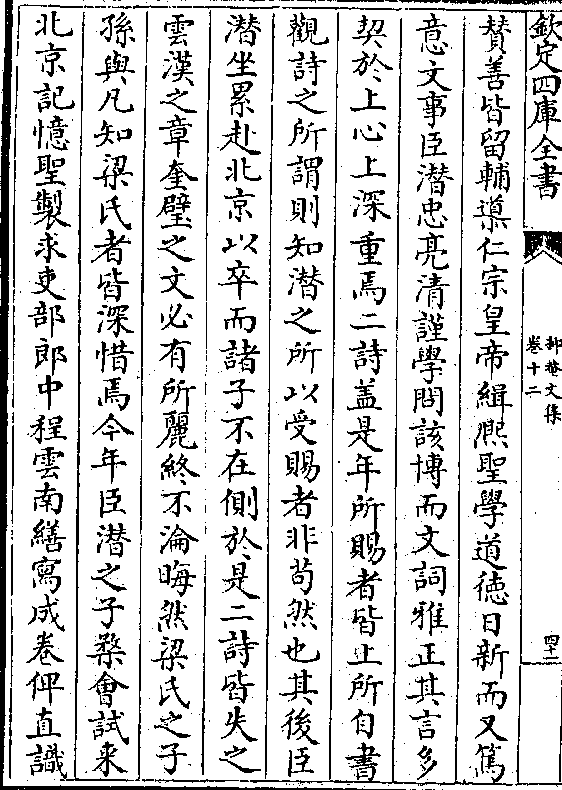 欽定四庫全書
抑菴文集
卷十二
四十二
賛善皆留輔導仁宗皇帝緝熙聖學道徳日新而又篤
意文事臣潜忠亮清謹學問該博而文詞雅正其言多
契於上心上深重焉二詩盖是年所賜者皆上所自書
觀詩之所謂則知潜之所以受賜者非苟然也其後臣
潜坐累赴北京以卒而諸子不在側於是二詩皆失之
雲漢之章奎璧之文必有所麗終不淪晦然梁氏之子
孫與凡知梁氏者皆深惜焉今年臣潜之子楘會試来
北京記憶聖製求吏部郎中程雲南繕寫成卷俾直識